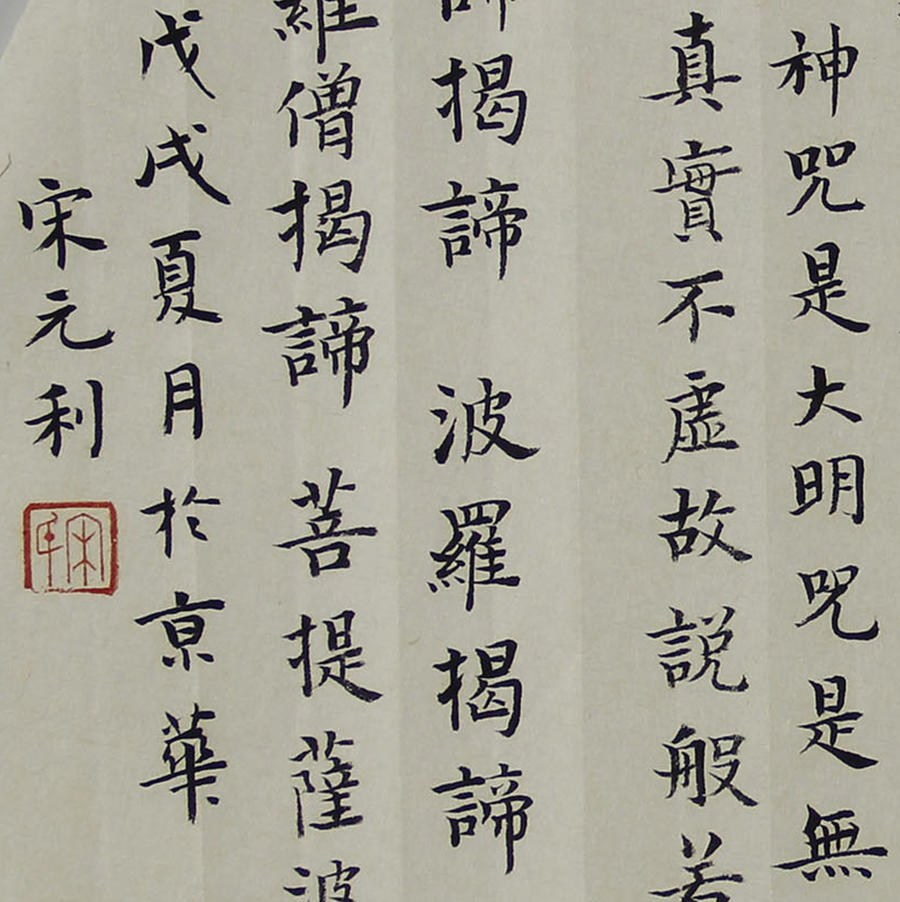 神咒是大明咒是無
真實不虛故說般若
諦揭諦 波羅揭諦
羅僧揭諦 菩提薩波
戊戌夏月於京華
宋元利